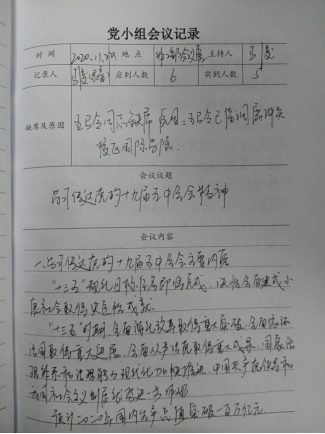 党小组会议记录
时间 2020.11. 地点 会议室 主持人
记录人 应到人数 6 实到人数 5
缺席及原因
会议议题
学习传达党的十九届五中全会精神
会议内容
一、学习传达党的十九届五中全会主要内容
"十三五"规划目标任务即将完成,决胜全面建成小
康社会取得决定性成就。
"十三五"时期,全面深化改革取得重大突破,全面依法
治国取得重大进展,全面从严治党取得重大成果,国家治
理体系和治理能力现代化加快推进,中国共产党领导和
我国社会主义制度优势进一步彰显。
预计二〇二〇年国内生产总值突破一百万亿元。